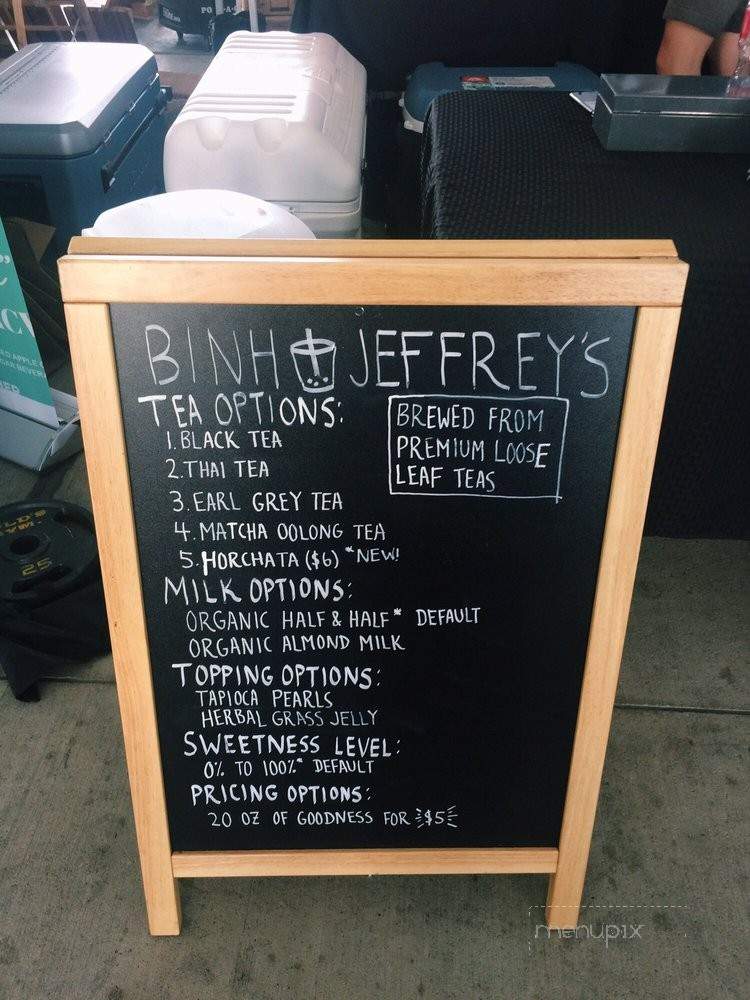 BINH JEFFREY'S
TEA OPTIONS:
1. BLACK TEA
2. THAI TEA
3. EARL GREY TEA
4. MATCHA OOLONG TEA
5. HORCHATA ($6) *NEW!
BREWED FROM
PREMIUM LOOSE
LEAF TEAS
MILK OPTIONS:
ORGANIC HALF & HALF* DEFAULT
ORGANIC ALMOND MILK
TOPPING OPTIONS:
TAPIOCA PEARLS
HERBAL GRASS JELLY
SWEETNESS LEVEL:
0% TO 100%* DEFAULT
PRICING OPTIONS:
20 OZ OF GOODNESS FOR $5
25
menupix